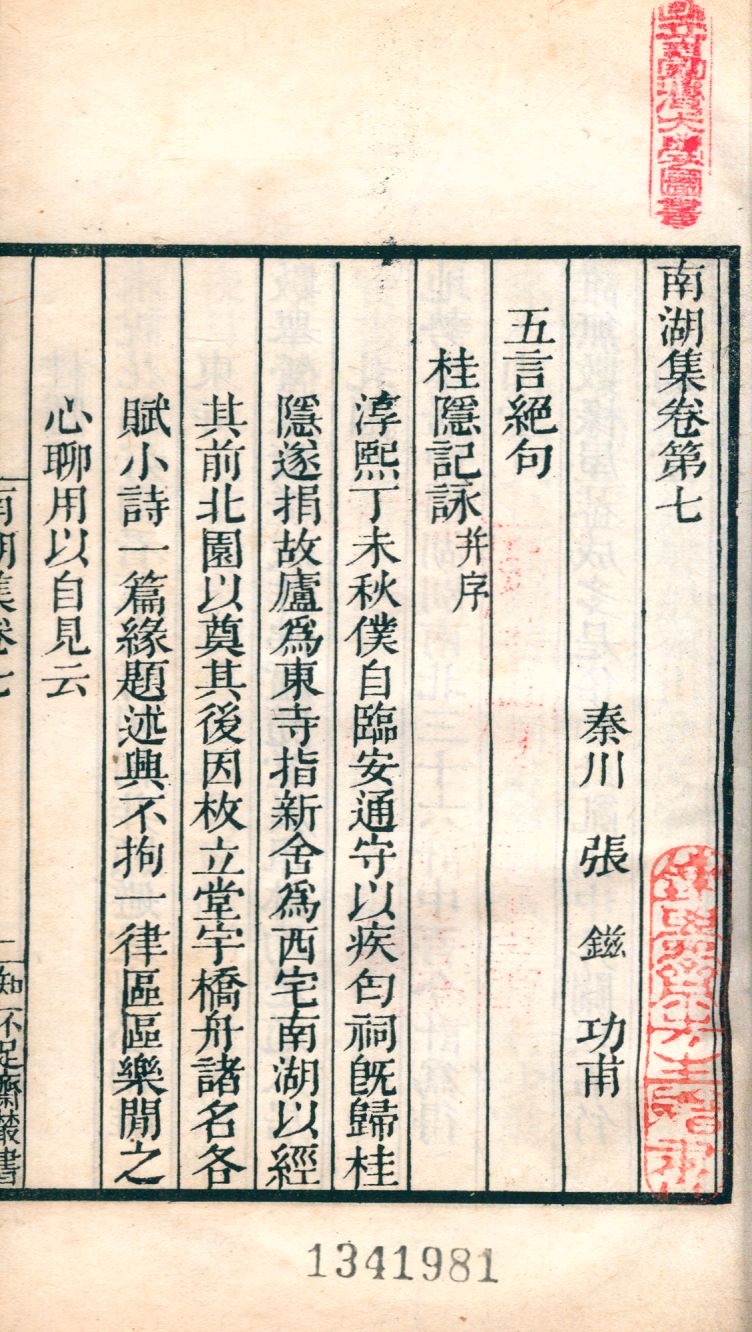 南湖集卷第七
秦川 張 鎡 功甫
五言絕句
桂隱記詠并序
淳熙丁未秋僕自臨安通守以疾匄祠旣歸桂
隱遂捐故廬爲東寺指新舍爲西宅南湖以經
其前北園以奠其後因枚立堂宇橋舟諸名各
賦小詩一篇緣題述興不拘一律區區樂閒之
心聊用以自見云
南湖集卷七
一知不足齋叢書
1341981